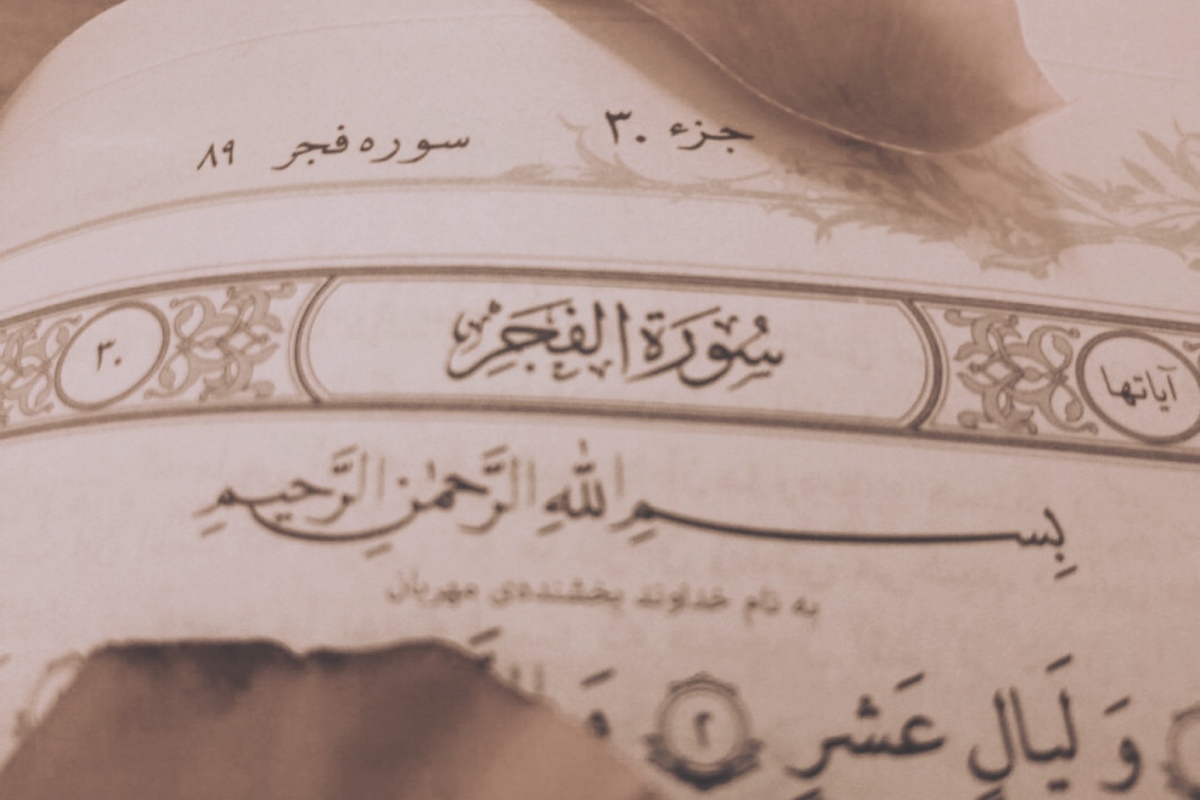 جزء ۳۰ سوره فجر ۸۹
آیاتها سُورَةُ الفَجرِ ۳۰
بِسمِ اللهِ الرَّحمٰنِ الرَّحيمِ
به نام خداوند بخشنده‌ی مهربان
وَ لَيالٍ عَشرٍ ۲ وَ